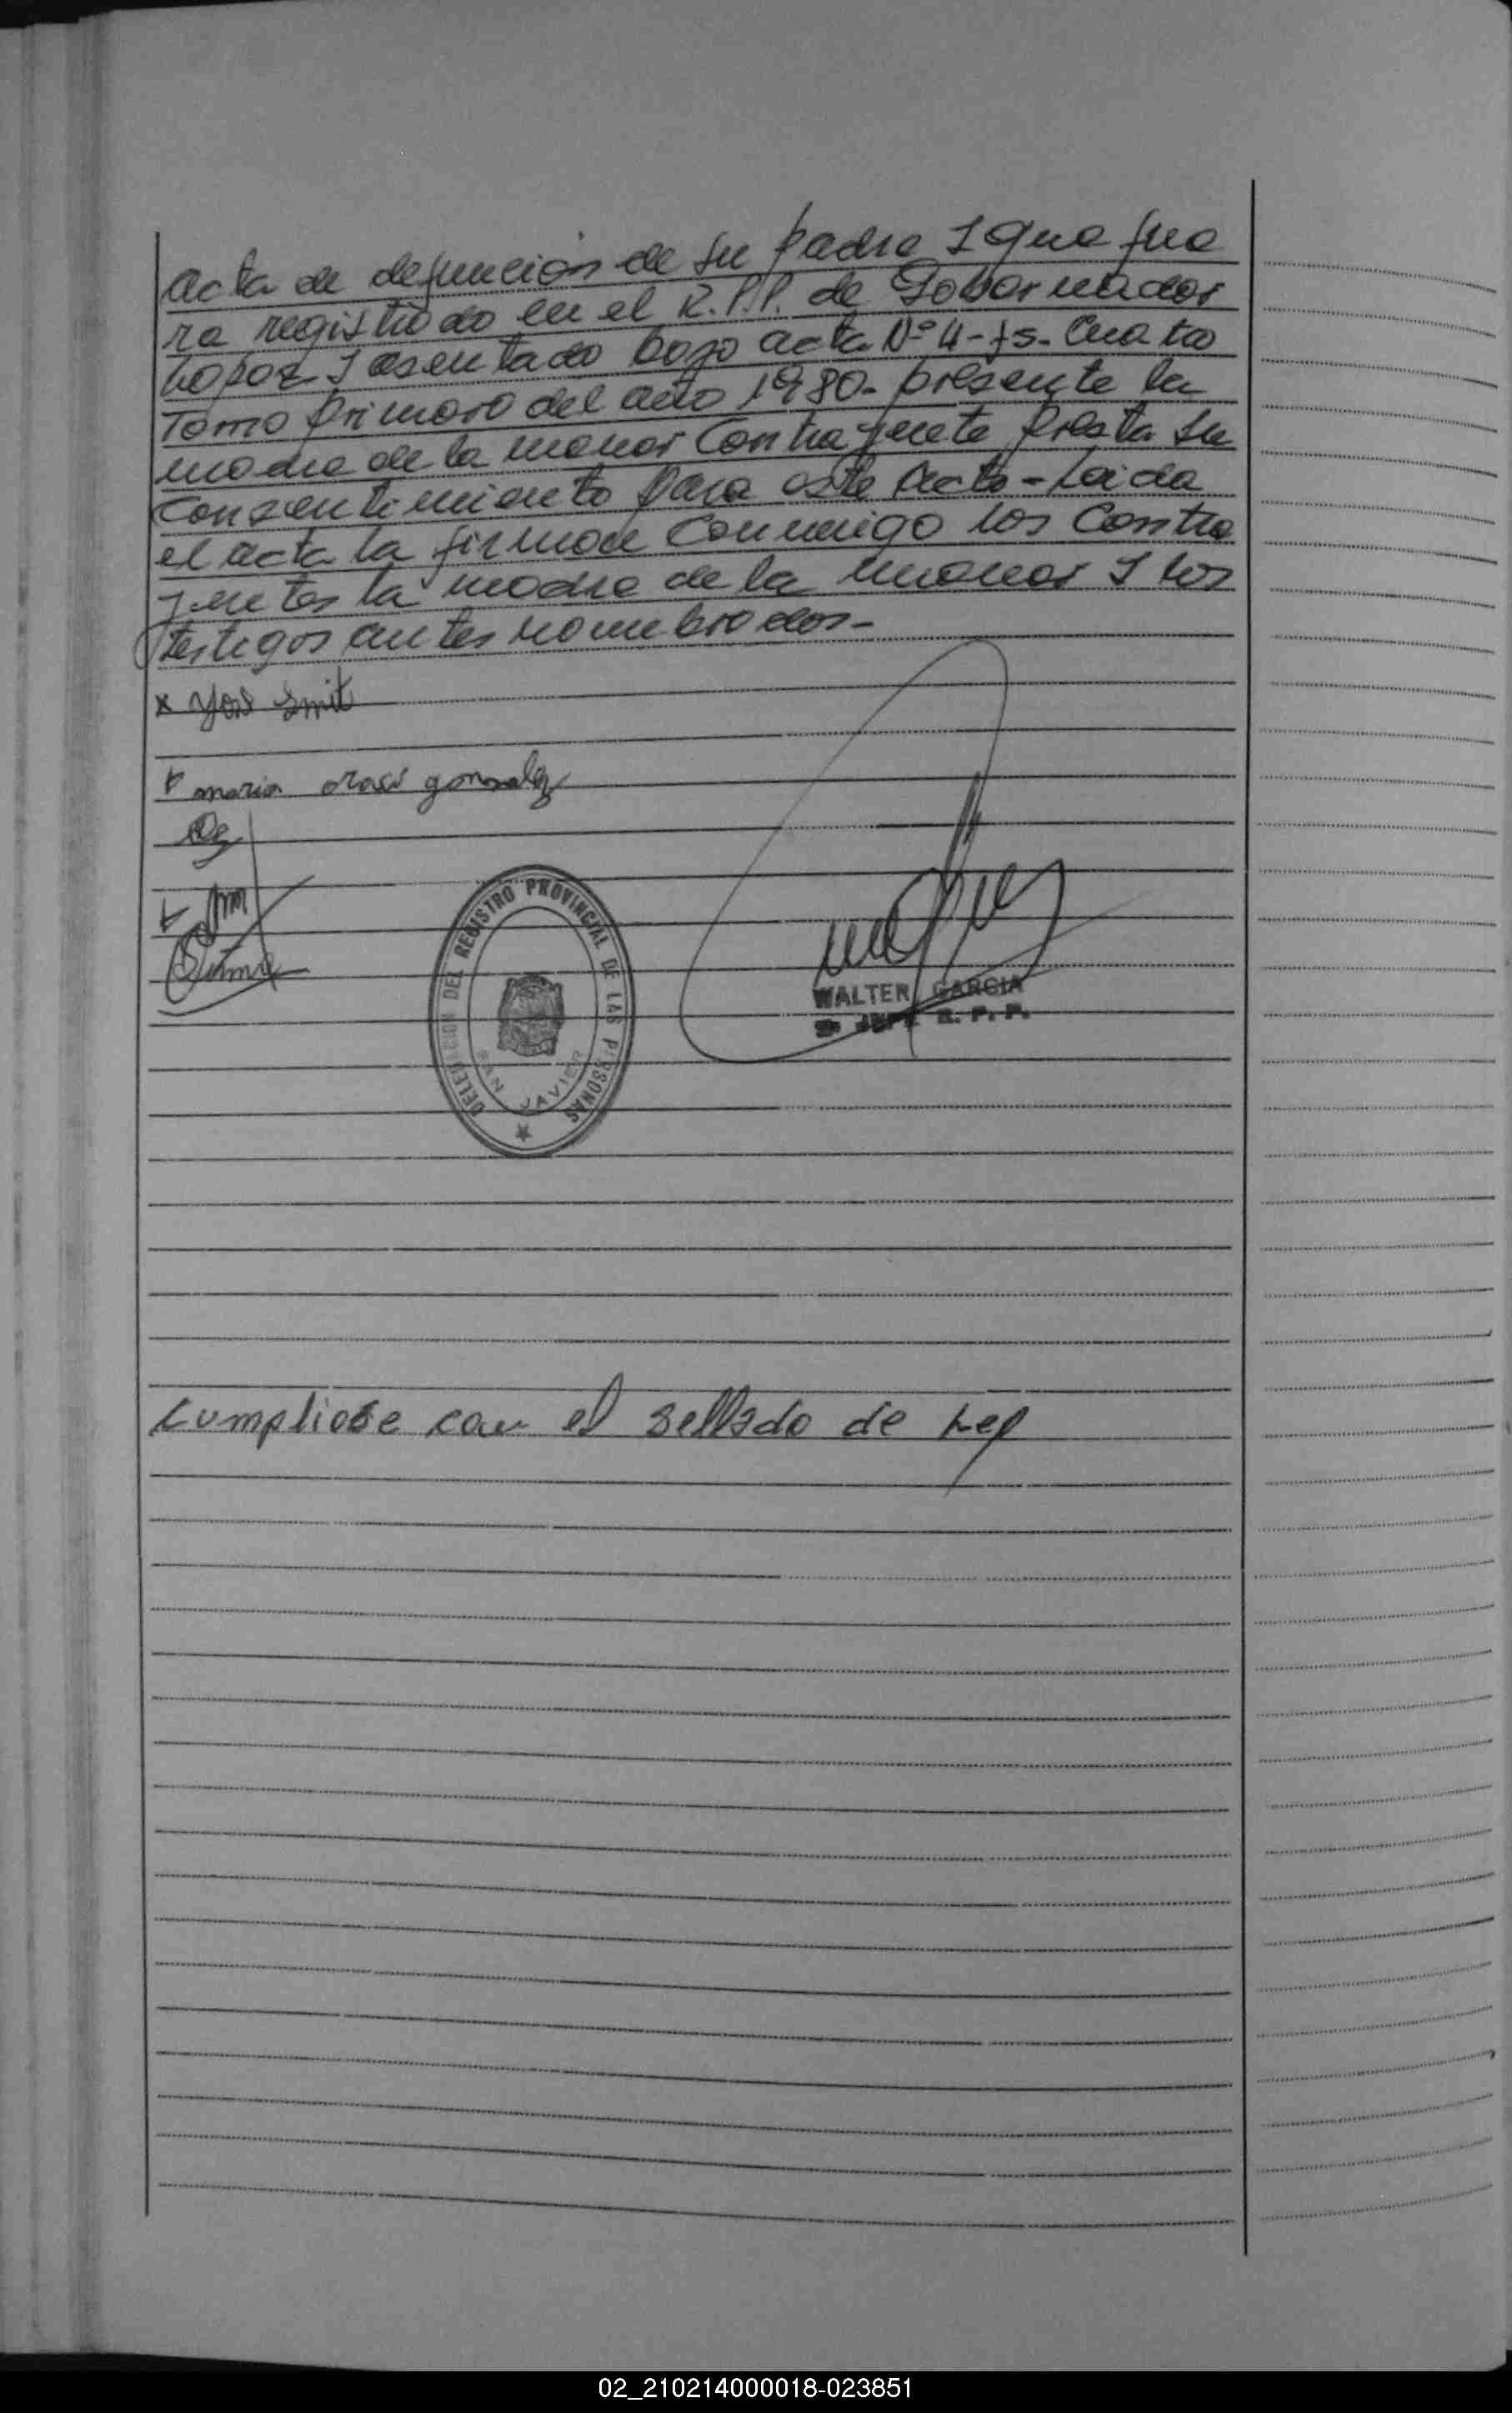 acta de defunción de su padre y que fue
ra registrado en el R.P.P. de Gobernador
Lopez y asentado bajo acta Nº 4-fs. Cuatro
Tomo primero del año 1980- presente la
madre de la menor Contrayente presta su
Consentimiento para este acto - Leida
el acta la firman Conmigo los Contra
yentes la madre de la menor y los
testigos antes nombrados-
x José Smit
maria gonzalez
DELEGACION DEL REGISTRO PROVINCIAL DE LAS PERSONAS
SAN JAVIER
WALTER GARCIA
JEFE R. P. P.
Cumpliose con el sellado de Ley
02_210214000018-023851